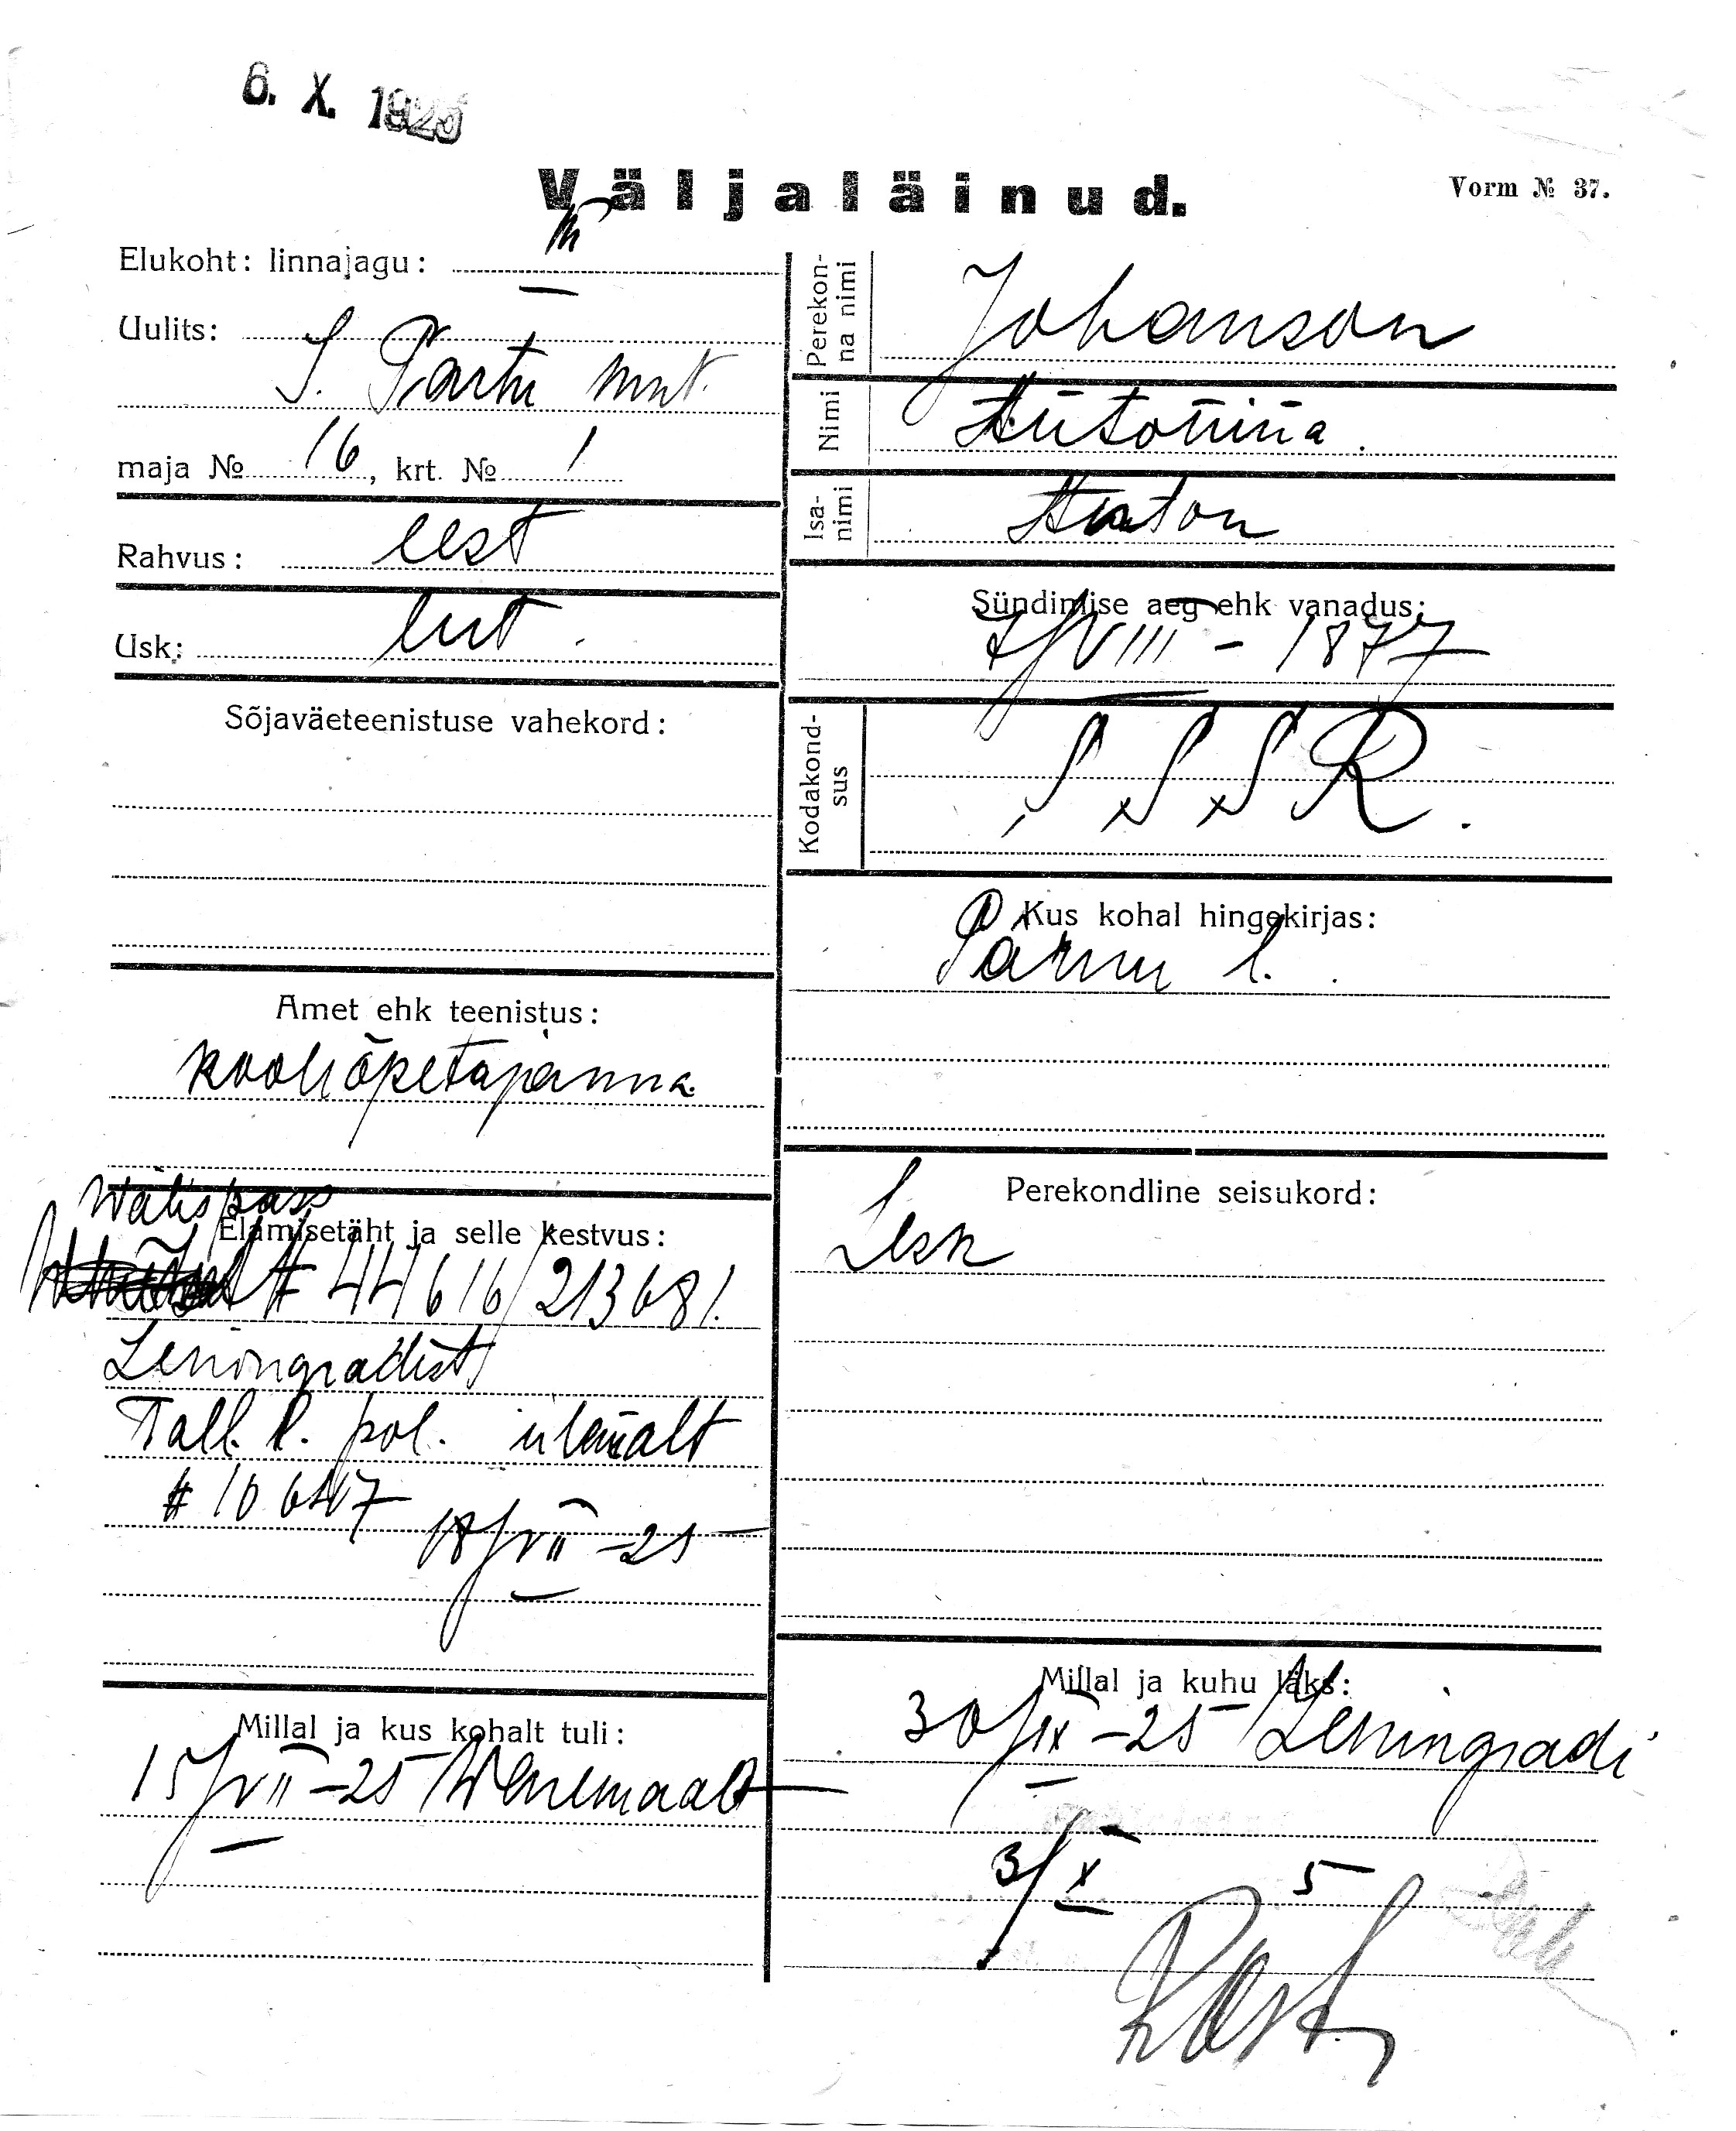 6. X. 1925
Väljaläinud.
Vorm № 37.
Elukoht: linnajagu: III
Uulits:
S. Tartu mnt.
maja № 16, krt. № 1
Rahvus: eest
Usk: lut.
Sõjaväeteenistuse vahekord:
Amet ehk teenistus:
kooliõpetajanna
Wälispass
Elamisetäht ja selle kestvus:
# 44616/213681.
Leningradist
Tall. l. pol. ülemalt
18/VII -25
Millal ja kus kohalt tuli:
15/VII -25 Wenemaalt
Perekonna nimi
Johanson
Nimi
Antonina
Isanimi
Anton
Sündimise aeg ehk vanadus:
7/VIII - 1877
Kodakondsus
SSSR.
Kus kohal hingekirjas:
Pärnu l.
Perekondline seisukord:
Lesk
Millal ja kuhu läks:
30/IX -25 Leningradi
3/X 5